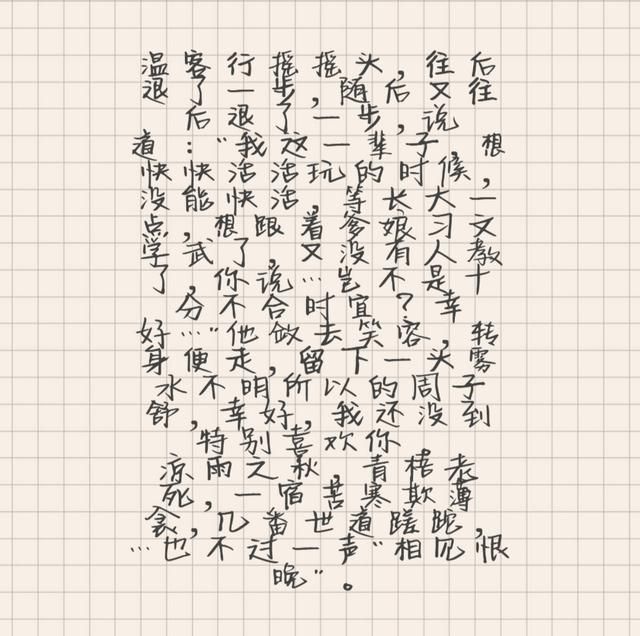 温客行摇摇头，往后
退了一步，随后又往
后退了一步，说
道：“我这一辈子，想
快快活活玩的时候，
没能快活，等长大一
点，想跟着爹娘习文
学武了，又没有人教
了，你说…岂不是十
分不合时宜？幸
好…”他敛去笑容，转
身便走，留下一头雾
水不明所以的周子
舒，幸好，我还没到
特别喜欢你
凉雨之秋，青梧老
死，一宿苦寒欺薄
衾，几番世道蹉跎，
…也不过一声“相见恨
晚”。